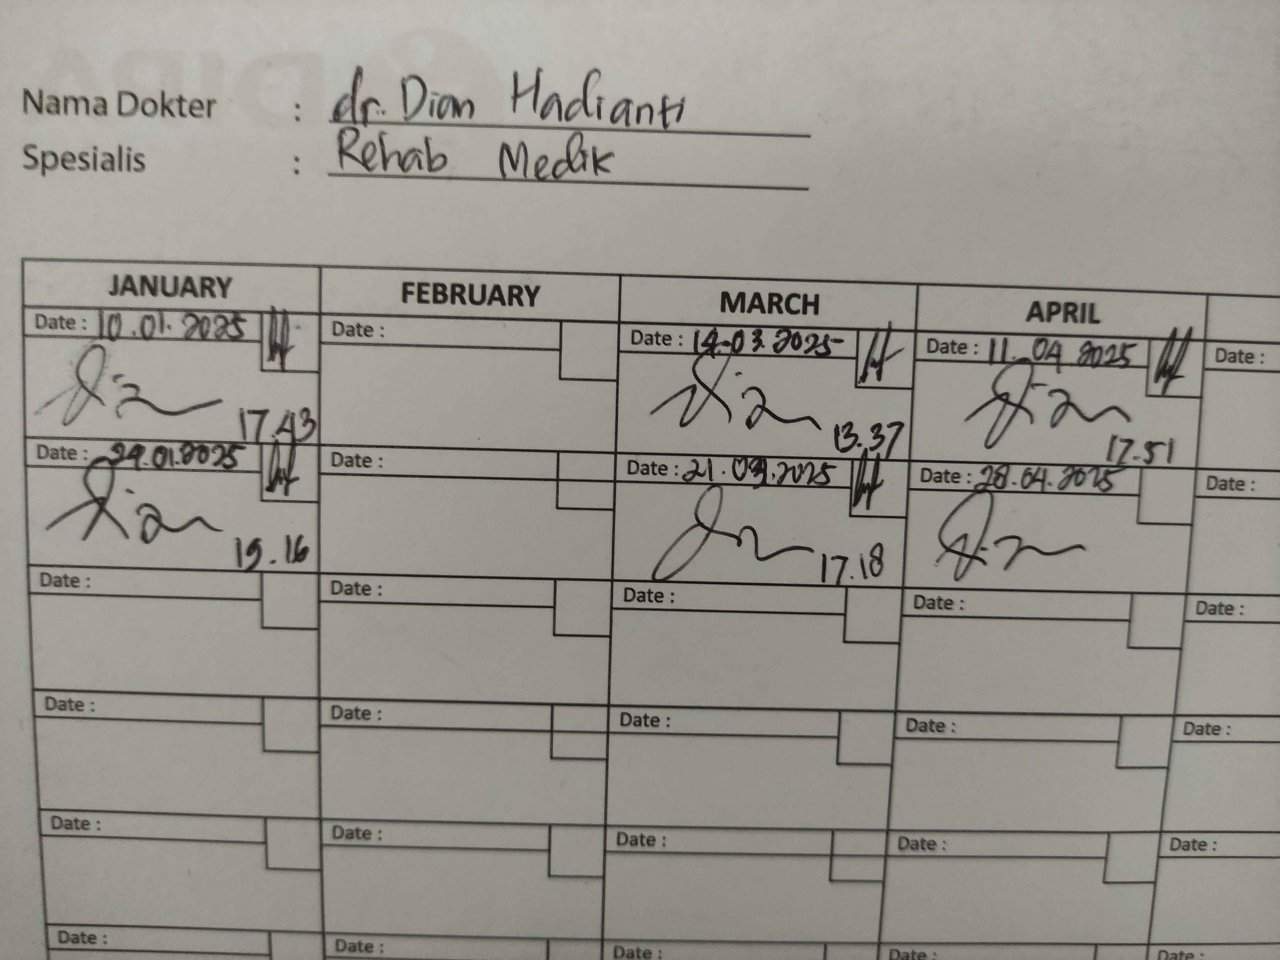 Nama Dokter : dr. Dian Hadianti
Spesialis : Rehab Medik
JANUARY FEBRUARY MARCH APRIL
Date : 10.01.2025 Date : Date : 14.03.2025 Date : 11.04 2025 Date :
17.43 13.37 17.51
Date : 29.01.2025 Date : Date : 21.03.2025 Date : 28.04.2025 Date :
19.16 17.18
Date : Date : Date : Date : Date :
Date : Date : Date : Date : Date :
Date : Date : Date : Date : Date :
Date : Date : Date : Date : Date :